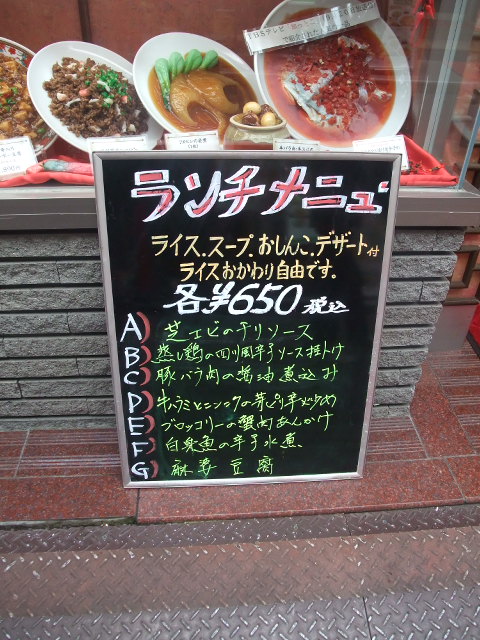 ランチメニュー
ライス.スープ.おしんこ.デザート付
ライスおかわり自由です.
各¥650 税込
A) 芝エビのチリソース
B) 蒸し鶏の四川風辛子ソース掛け
C) 豚バラ肉の醤油煮込み
D) 牛ハラミとニンニクの芽ピリ辛炒め
E) ブロッコリーの蟹肉あんかけ
F) 白身魚の辛子水煮
G) 麻婆豆腐